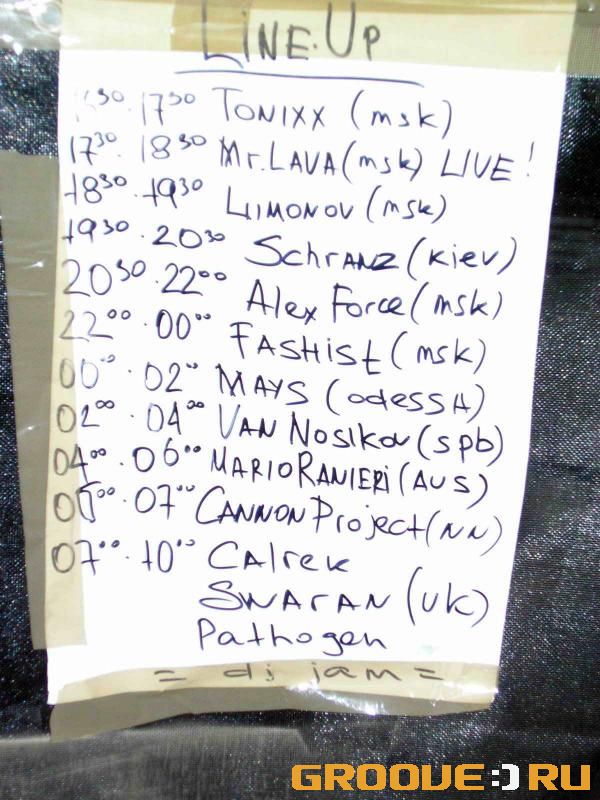 LINE.UP
1630.1730 TONIXX (msk)
1730.1830 Mr.LAVA (msk) LIVE!
1830.1930 LiMONOV (msk)
1930.2030 SchrANZ (kiev)
2030.2200 Alex Force (msk)
2200.0000 FASHiSt (msk)
0000.0200 MAYS (odessA)
0200.0400 VAN NosikOv (spb)
0400.0600 MARIO RANIERi (AUS)
0600.0700 CANNON Project (NN)
0700.1000 CAlrek
SWArAN (UK)
Pathogen
= dj jam =
GROOVE:)RU